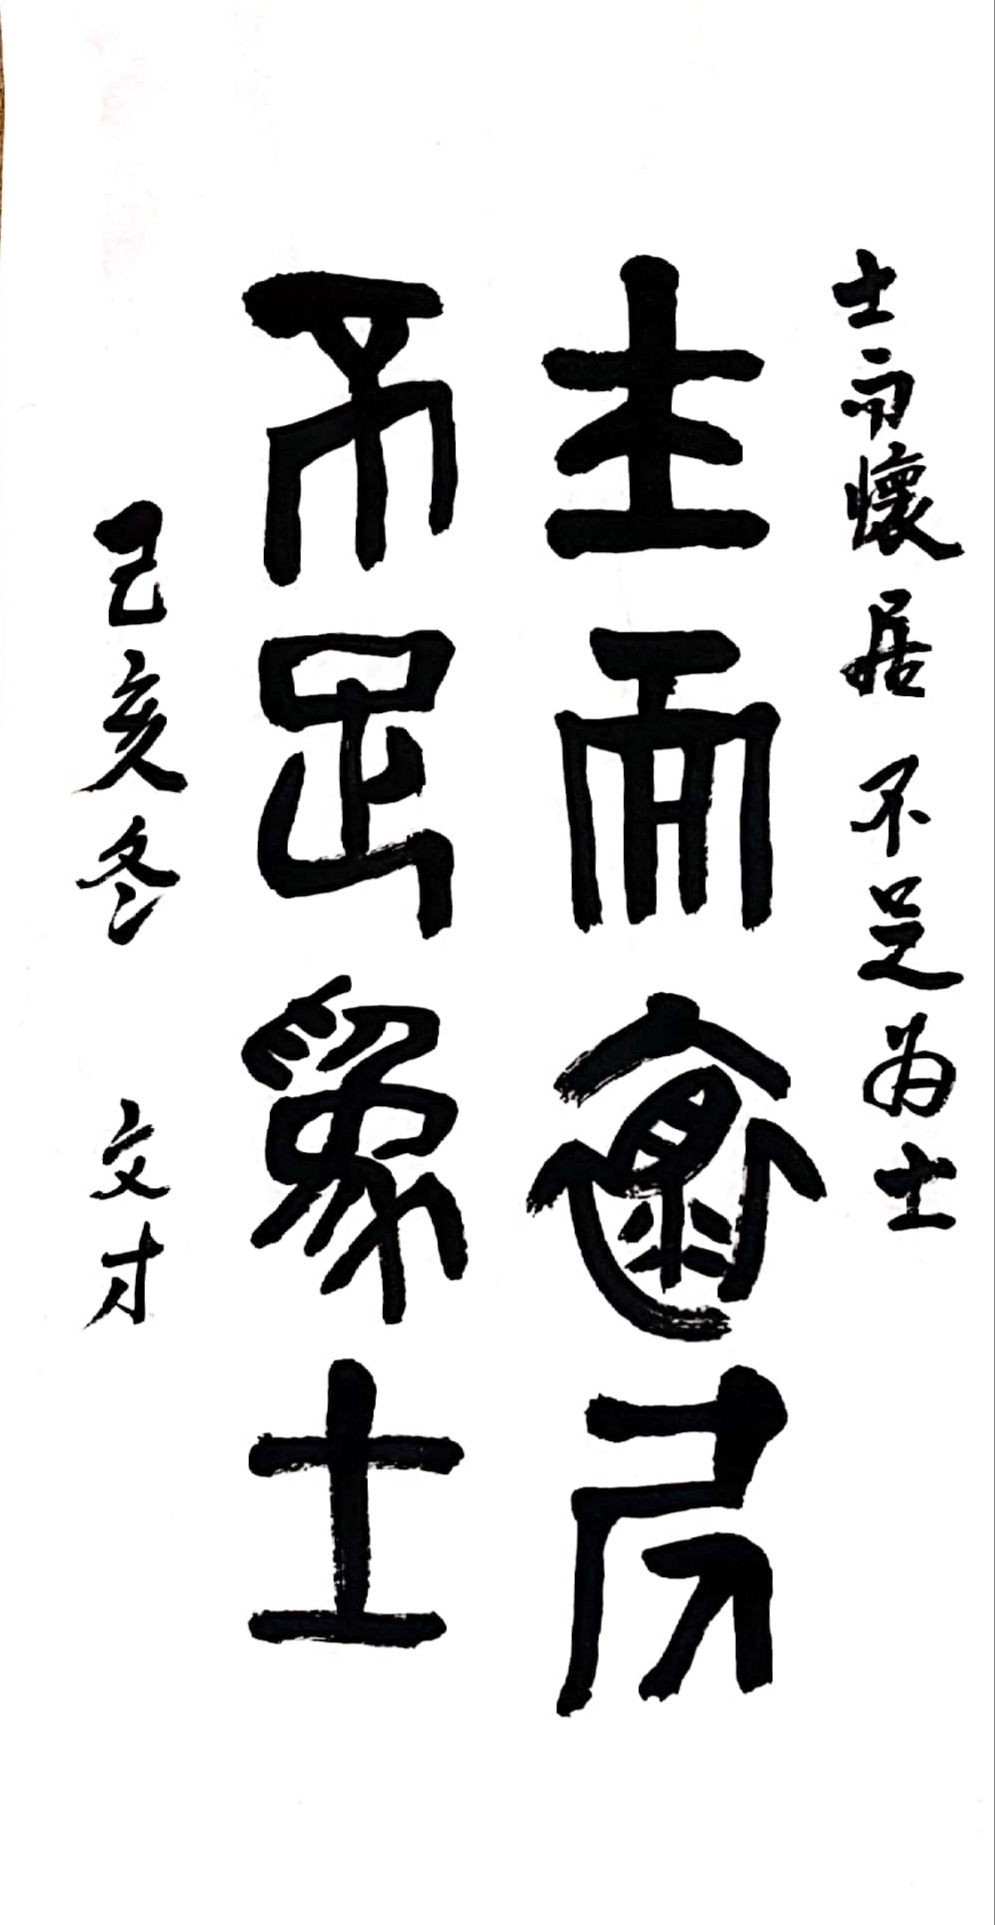 士而懷居不足为士
士而懷居
不足為士
己亥冬 文才